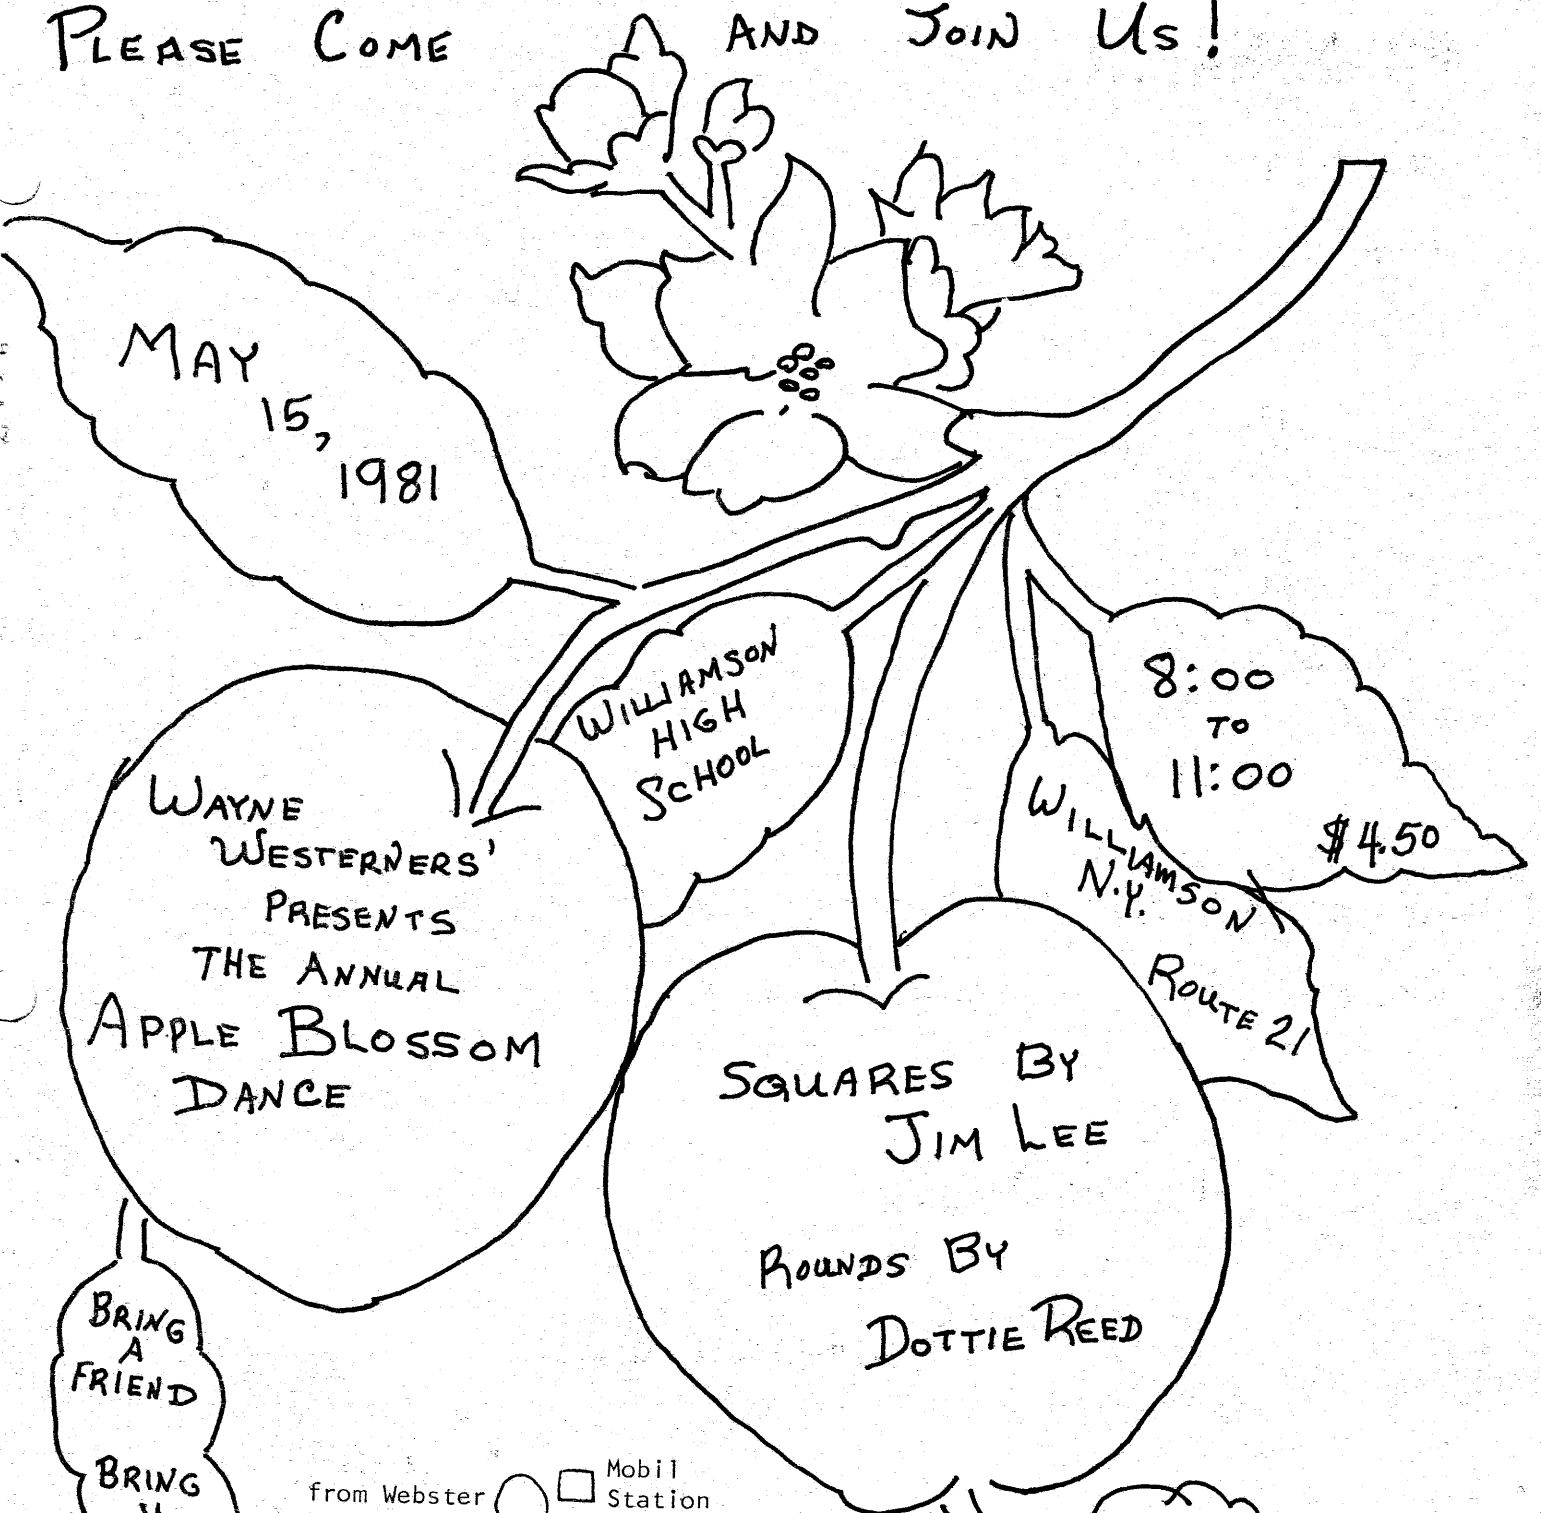 PLEASE COME AND JOIN US!
MAY
15,
1981
WILLIAMSON
HIGH
SCHOOL
8:00
TO
11:00
$4.50
WILLIAMSON
N.Y.
ROUTE 21
WAYNE
WESTERNERS'
PRESENTS
THE ANNUAL
APPLE BLOSSOM
DANCE
SQUARES BY
JIM LEE
ROUNDS BY
DOTTIE REED
BRING
A
FRIEND
BRING
from Webster
Mobil
Station